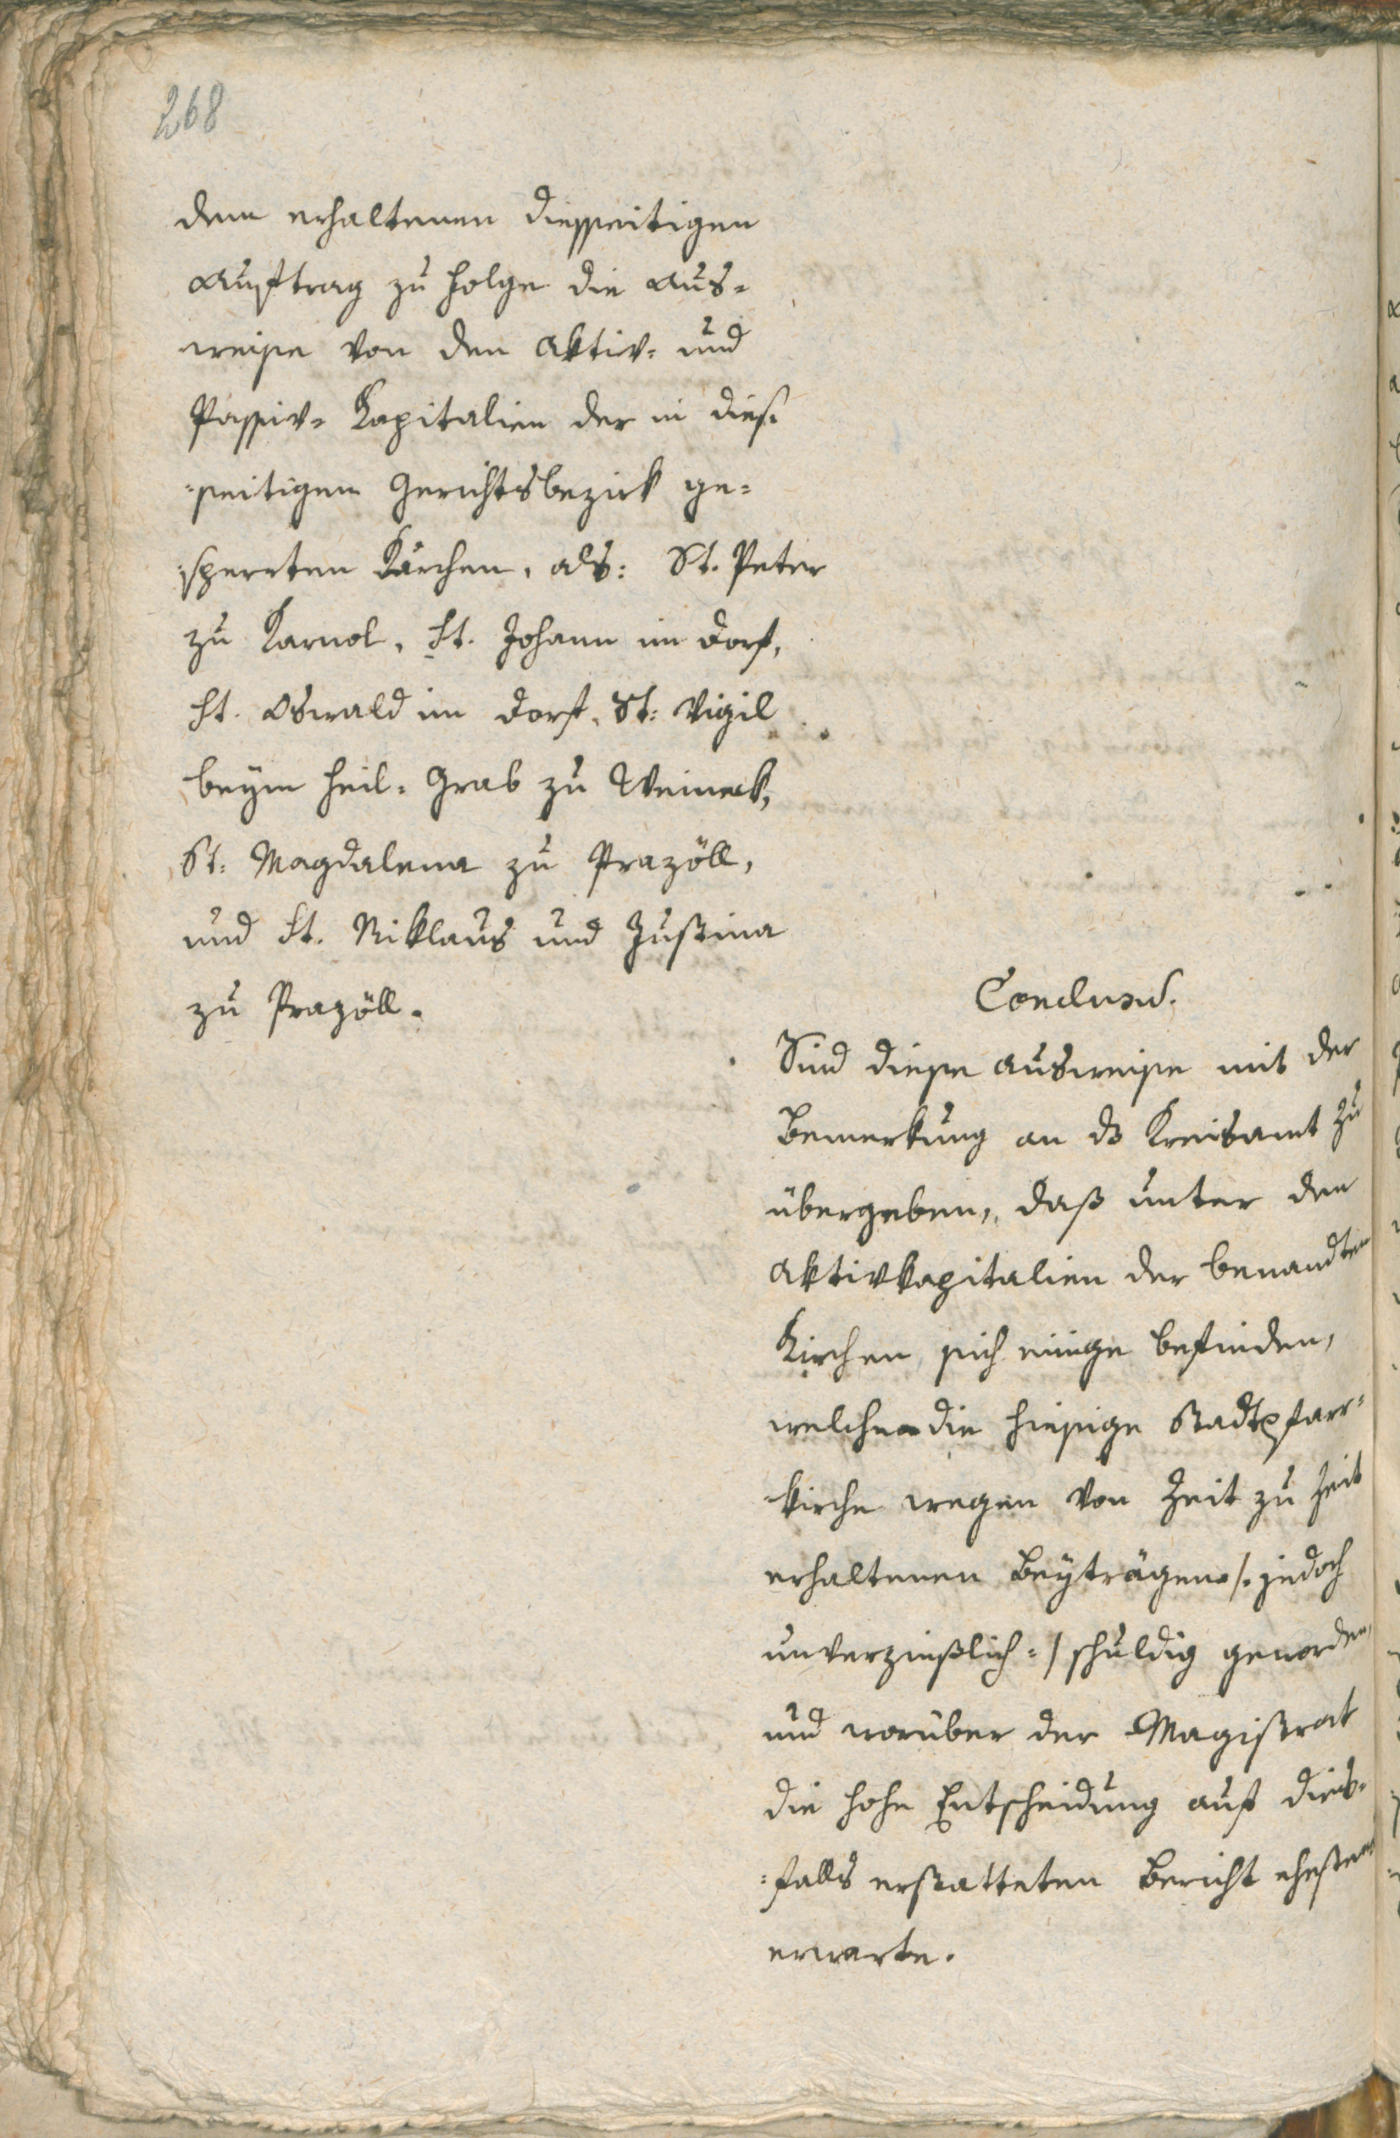 268
dem erhaltenen diesseitigen
Auftrag zu Folge die Aus-
weise von den Aktiv- und
Passiv- Kapitalien der in dies-
seitigem Gerichtsbezirk ge-
sperrten Kirchen, als: St. Peter
zu Karnol, St. Johann im Dorf,
St. Oswald im Dorf, St: Vigil
beym heil. Grab zu Weineck,
St: Magdalena zu Prazöll,
und St. Niklaus und Justina
zu Prazöll.
Conclusum.
Sind diese Ausweise mit der
Bemerkung an das Kreisamt zu
übergeben, daß unter den
Aktivkapitalien der benandten
Kirchen sich einige befinden,
welche die hiesige Stadtpfarr-
kirche wegen von Zeit zu Zeit
erhaltenen Beyträgen /: jedoch
unverzinßlich :/ schuldig geworden,
und worüber der Magistrat
die hohe Entscheidung auf dies-
falls erstatteten Bericht ehestens
erwarte.